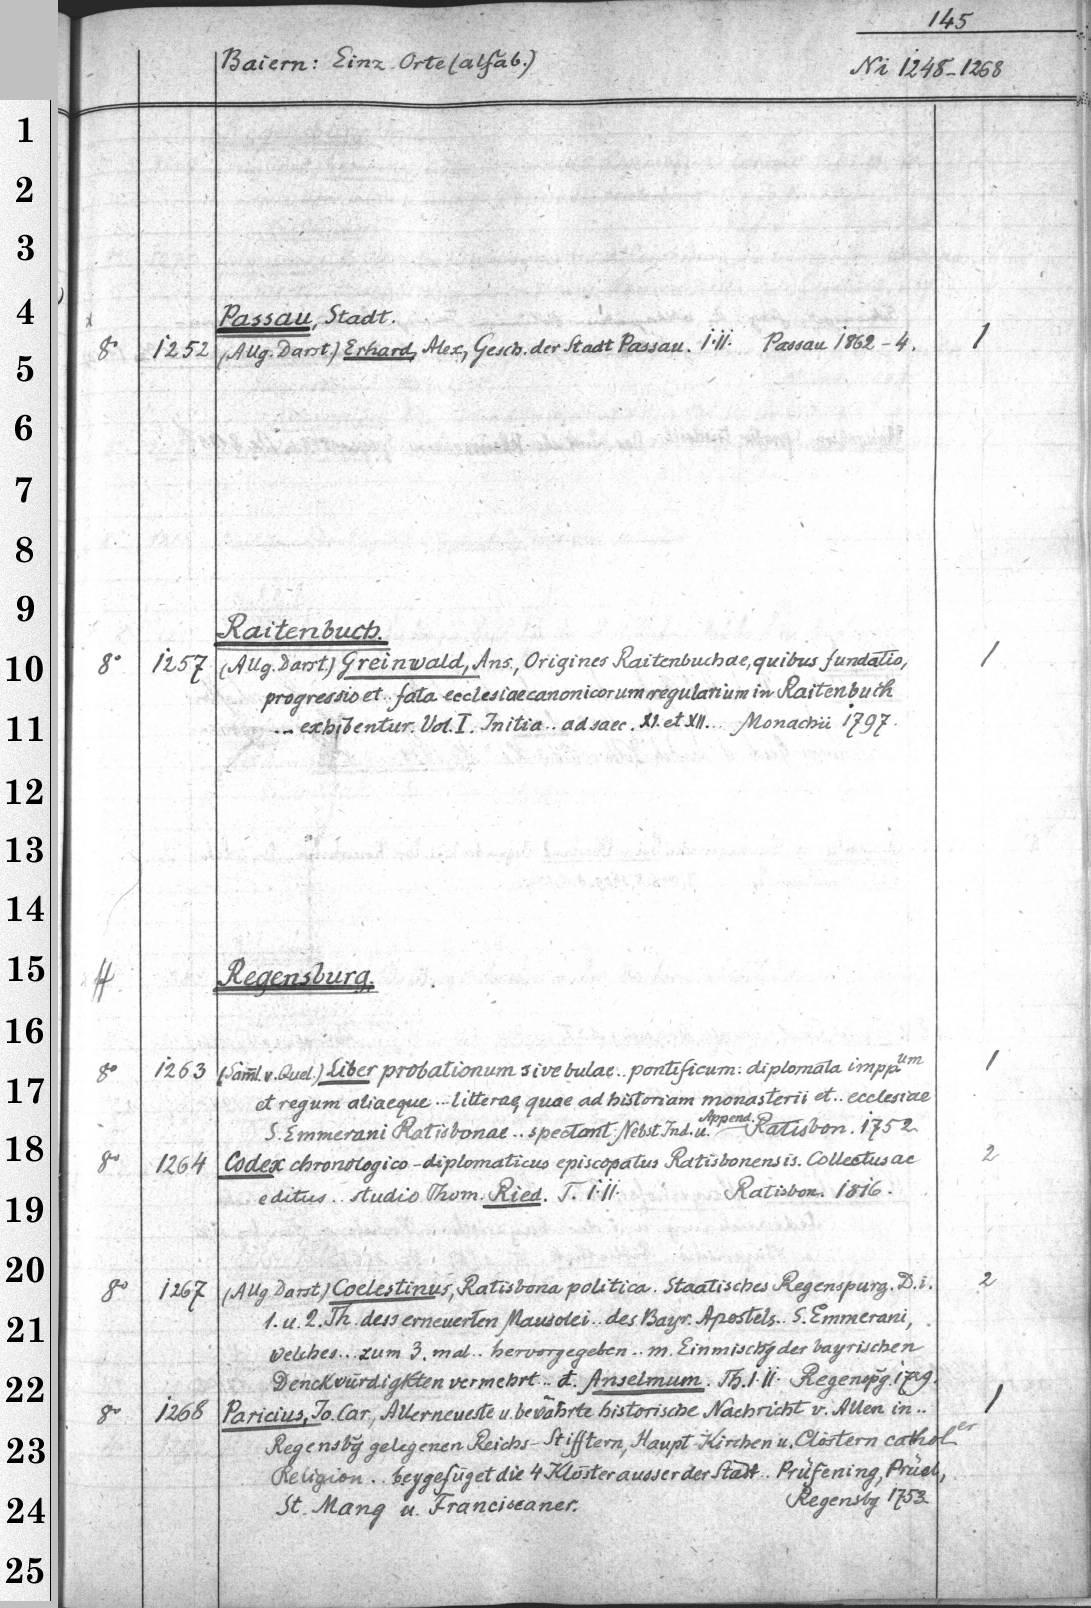 145
Baiern: Einz Orte (alfab.) Ni 1248-1268
1
2
3
4
Passau, Stadt.
8° 1252 (Allg. Darst.) Erhard, Alex, Gesch. der Stadt Passau. I.II. Passau 1862-4. 1
5
6
7
8
9
Raitenbuch.
10
8° 1257 (Allg. Darst.) Greinwald, Ans., Origines Raitenbuchae, quibus fundatio, 1
progressio et .. fata ecclesiae canonicorum regularium in Raitenbuch
11
... exhibentur. Vol. I. Initia .. ad saec. XI. et XII... Monachii 1797.
12
13
14
15
Regensburg.
16
8° 1263 (Saml. v. Quel.) Liber probationum sive bulae .. pontificum: diplomata impp um 1
17
et regum aliaeque ... litterae, quae ad historiam monasterii et .. ecclesiae
S. Emmerani Ratisbonae .. spectant. Nebst Ind. u. Append. Ratisbon. 1752
18
8° 1264 Codex chronologico-diplomaticus episcopatus Ratisbonensis. Collectus ac 2
editus .. studio Thom. Ried. T. I.II. Ratisbon. 1816.
19
20
8° 1267 (Allg Darst) Coelestinus, Ratisbona politica. Staatisches Regenspurg. D.i. 2
1. u. 2. Th. dess erneuerten Mausolei .. des Bayr. Apostels .. S. Emmerani,
21
welches .. zum 3. mal .. hervorgegeben .. m. Einmischg der bayrischen
22
Denckwürdigkten vermehrt .. d. Anselmum. Th. I.II. Regenspg. 1729.
8° 1268 Paricius, Jo. Car., Allerneueste u. bewährte historische Nachricht v. Allen in .. 1
23
Regensbg gelegenen Reichs-Stifftern, Haupt-Kirchen u. Clöstern cathol er
Religion .. beygefüget die 4 Klöster ausser der Stadt .. Prüfening, Prüel,
24
St. Mang u. Franciscaner. Regensbg 1753
25